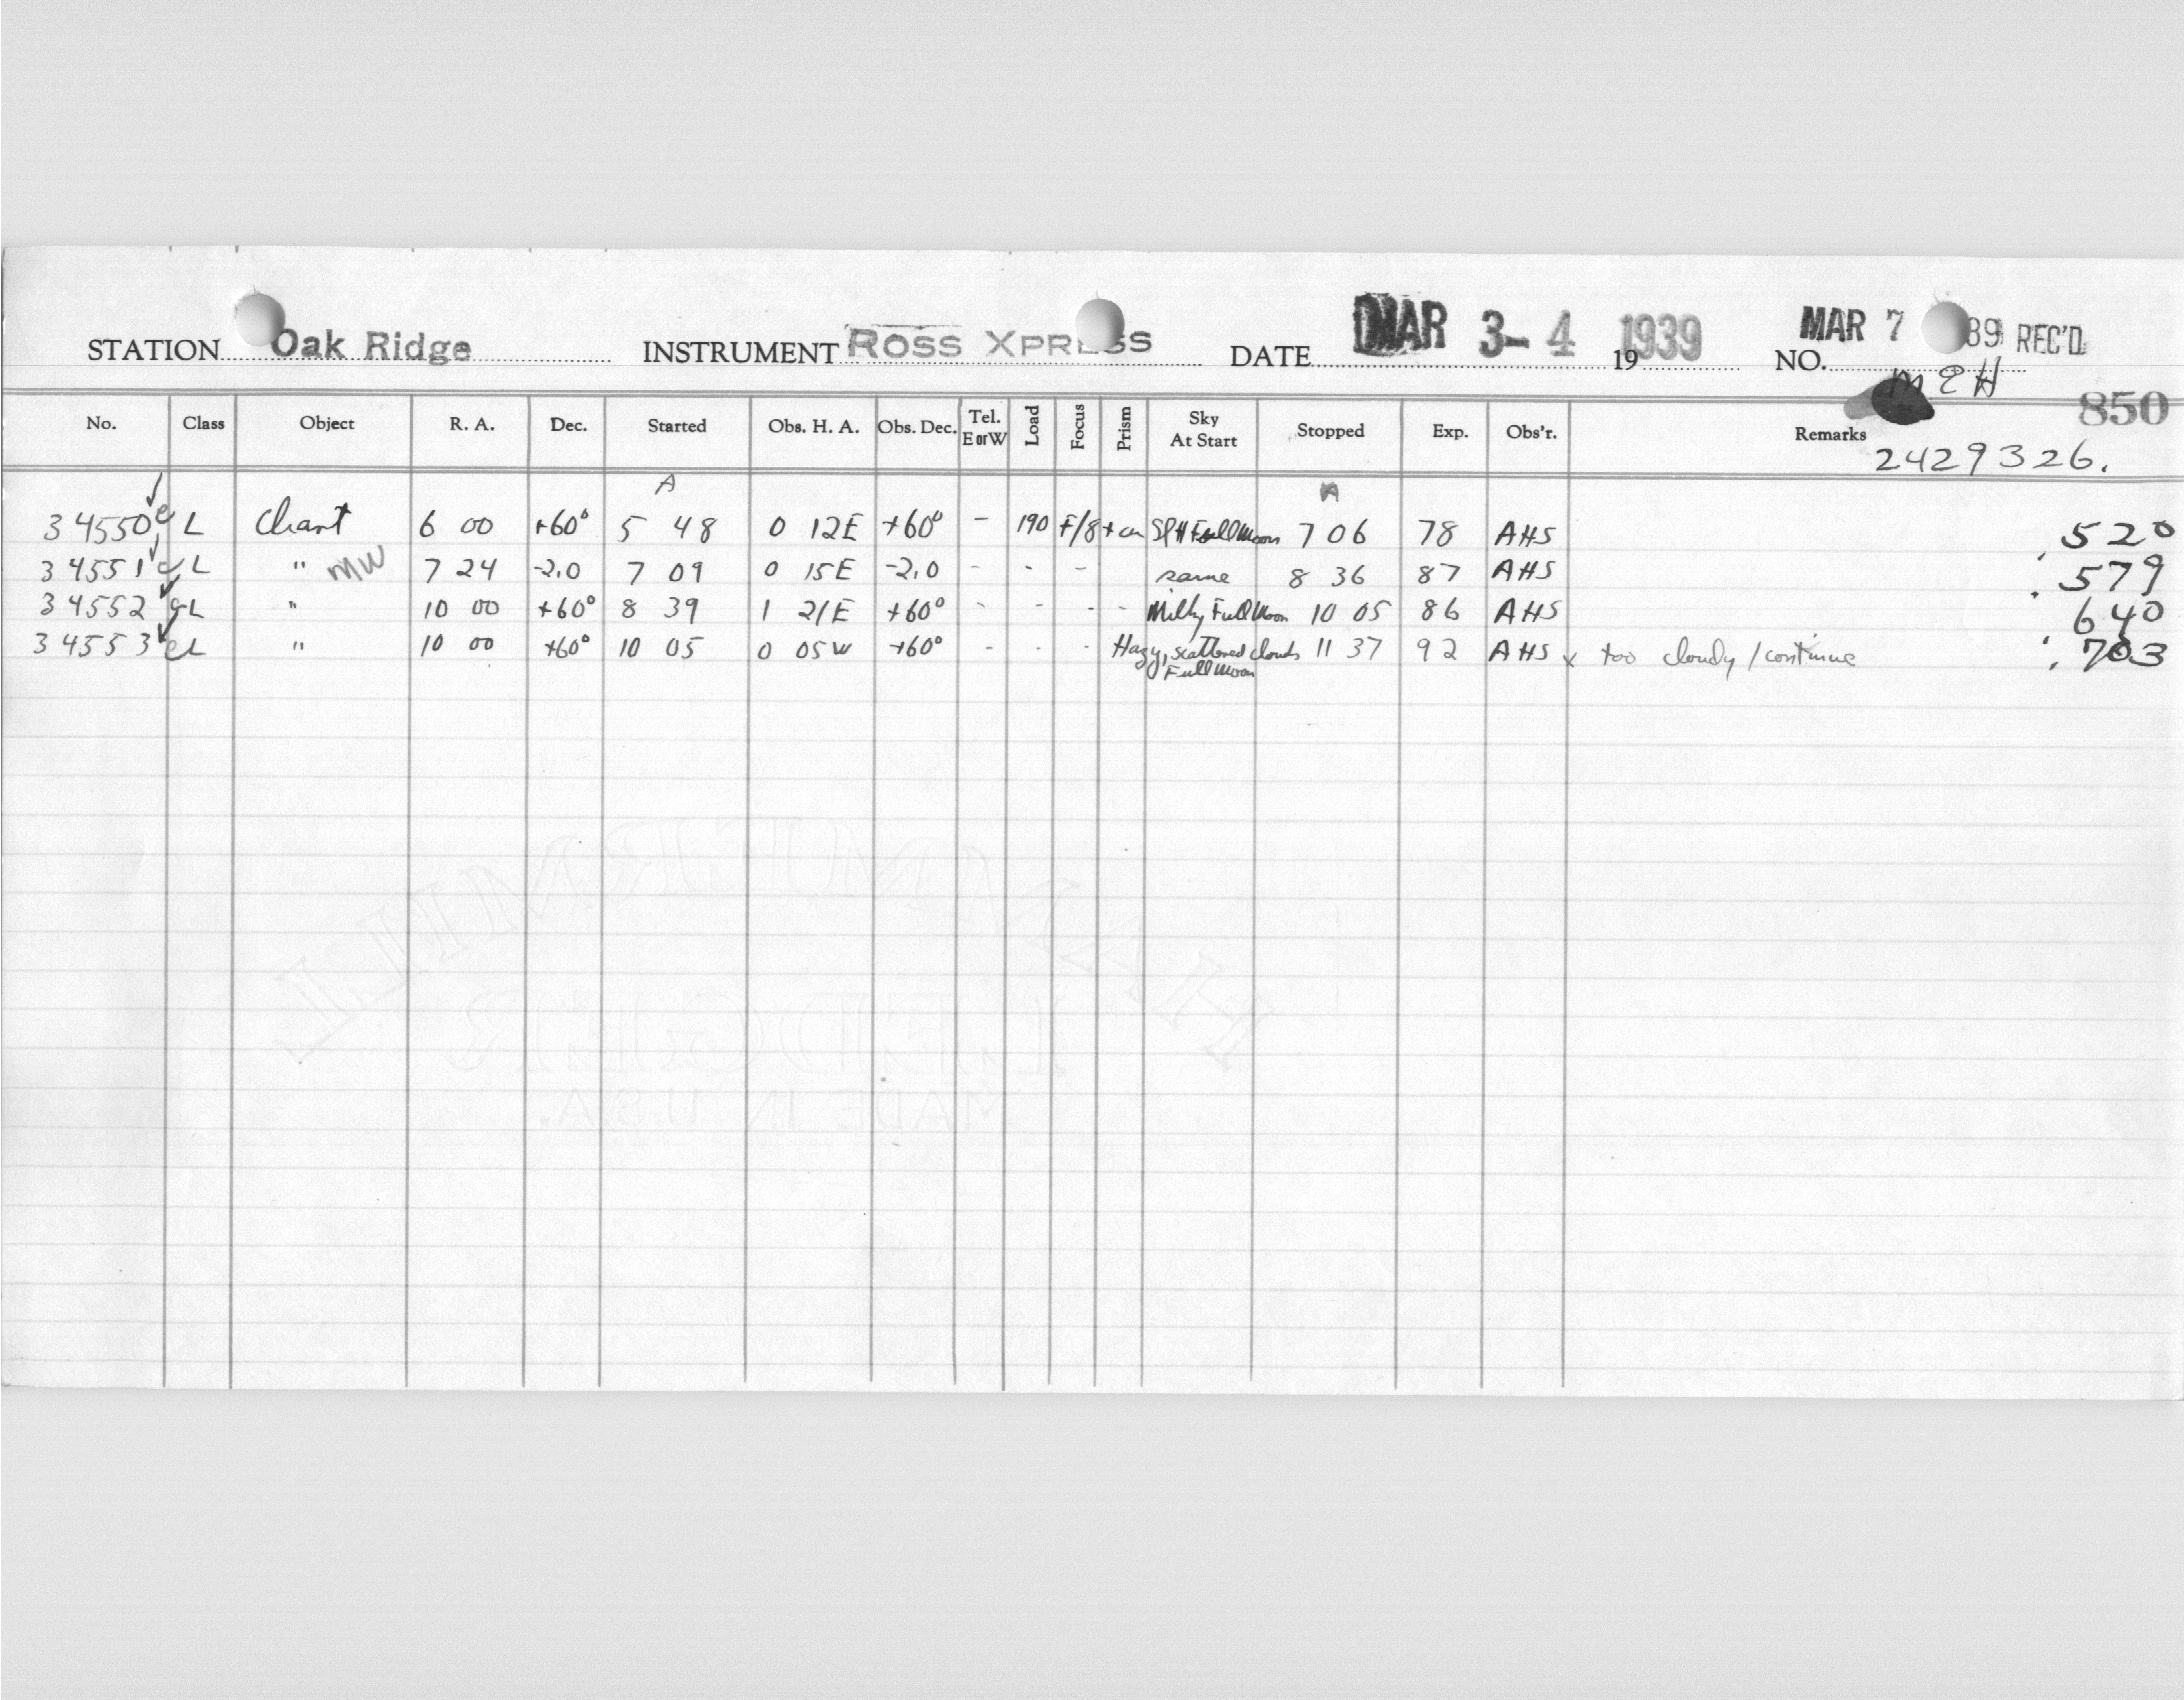 STATION Oak Ridge INSTRUMENT ROSS XPRESS DATE MAR 3-4 1939 19 NO. MAR 7 39 REC'D.
MEH
850
No. Class Object R. A. Dec. Started Obs. H. A. Obs. Dec. Tel. E or W Load Focus Prism Sky At Start Stopped Exp. Obs'r. Remarks
2429326.
A A
34550 e L Chart 6 00 +60° 5 48 0 12E +60° - 190 F/8 Full Moon 7 06 78 AHS .520
34551 L " MW 7 24 -2.0 7 09 0 15E -2.0 - - - same 8 36 87 AHS .579
34552 L " 10 00 +60° 8 39 1 21E +60° - - - - Milky Full Moon 10 05 86 AHS .640
34553 eL " 10 00 +60° 10 05 0 05W +60° - - - Hazy, scattered clouds 11 37 92 AHS x too cloudy / continue .703
Full Moon
HAMMERMILL
LEDGER
MADE IN U.S.A.